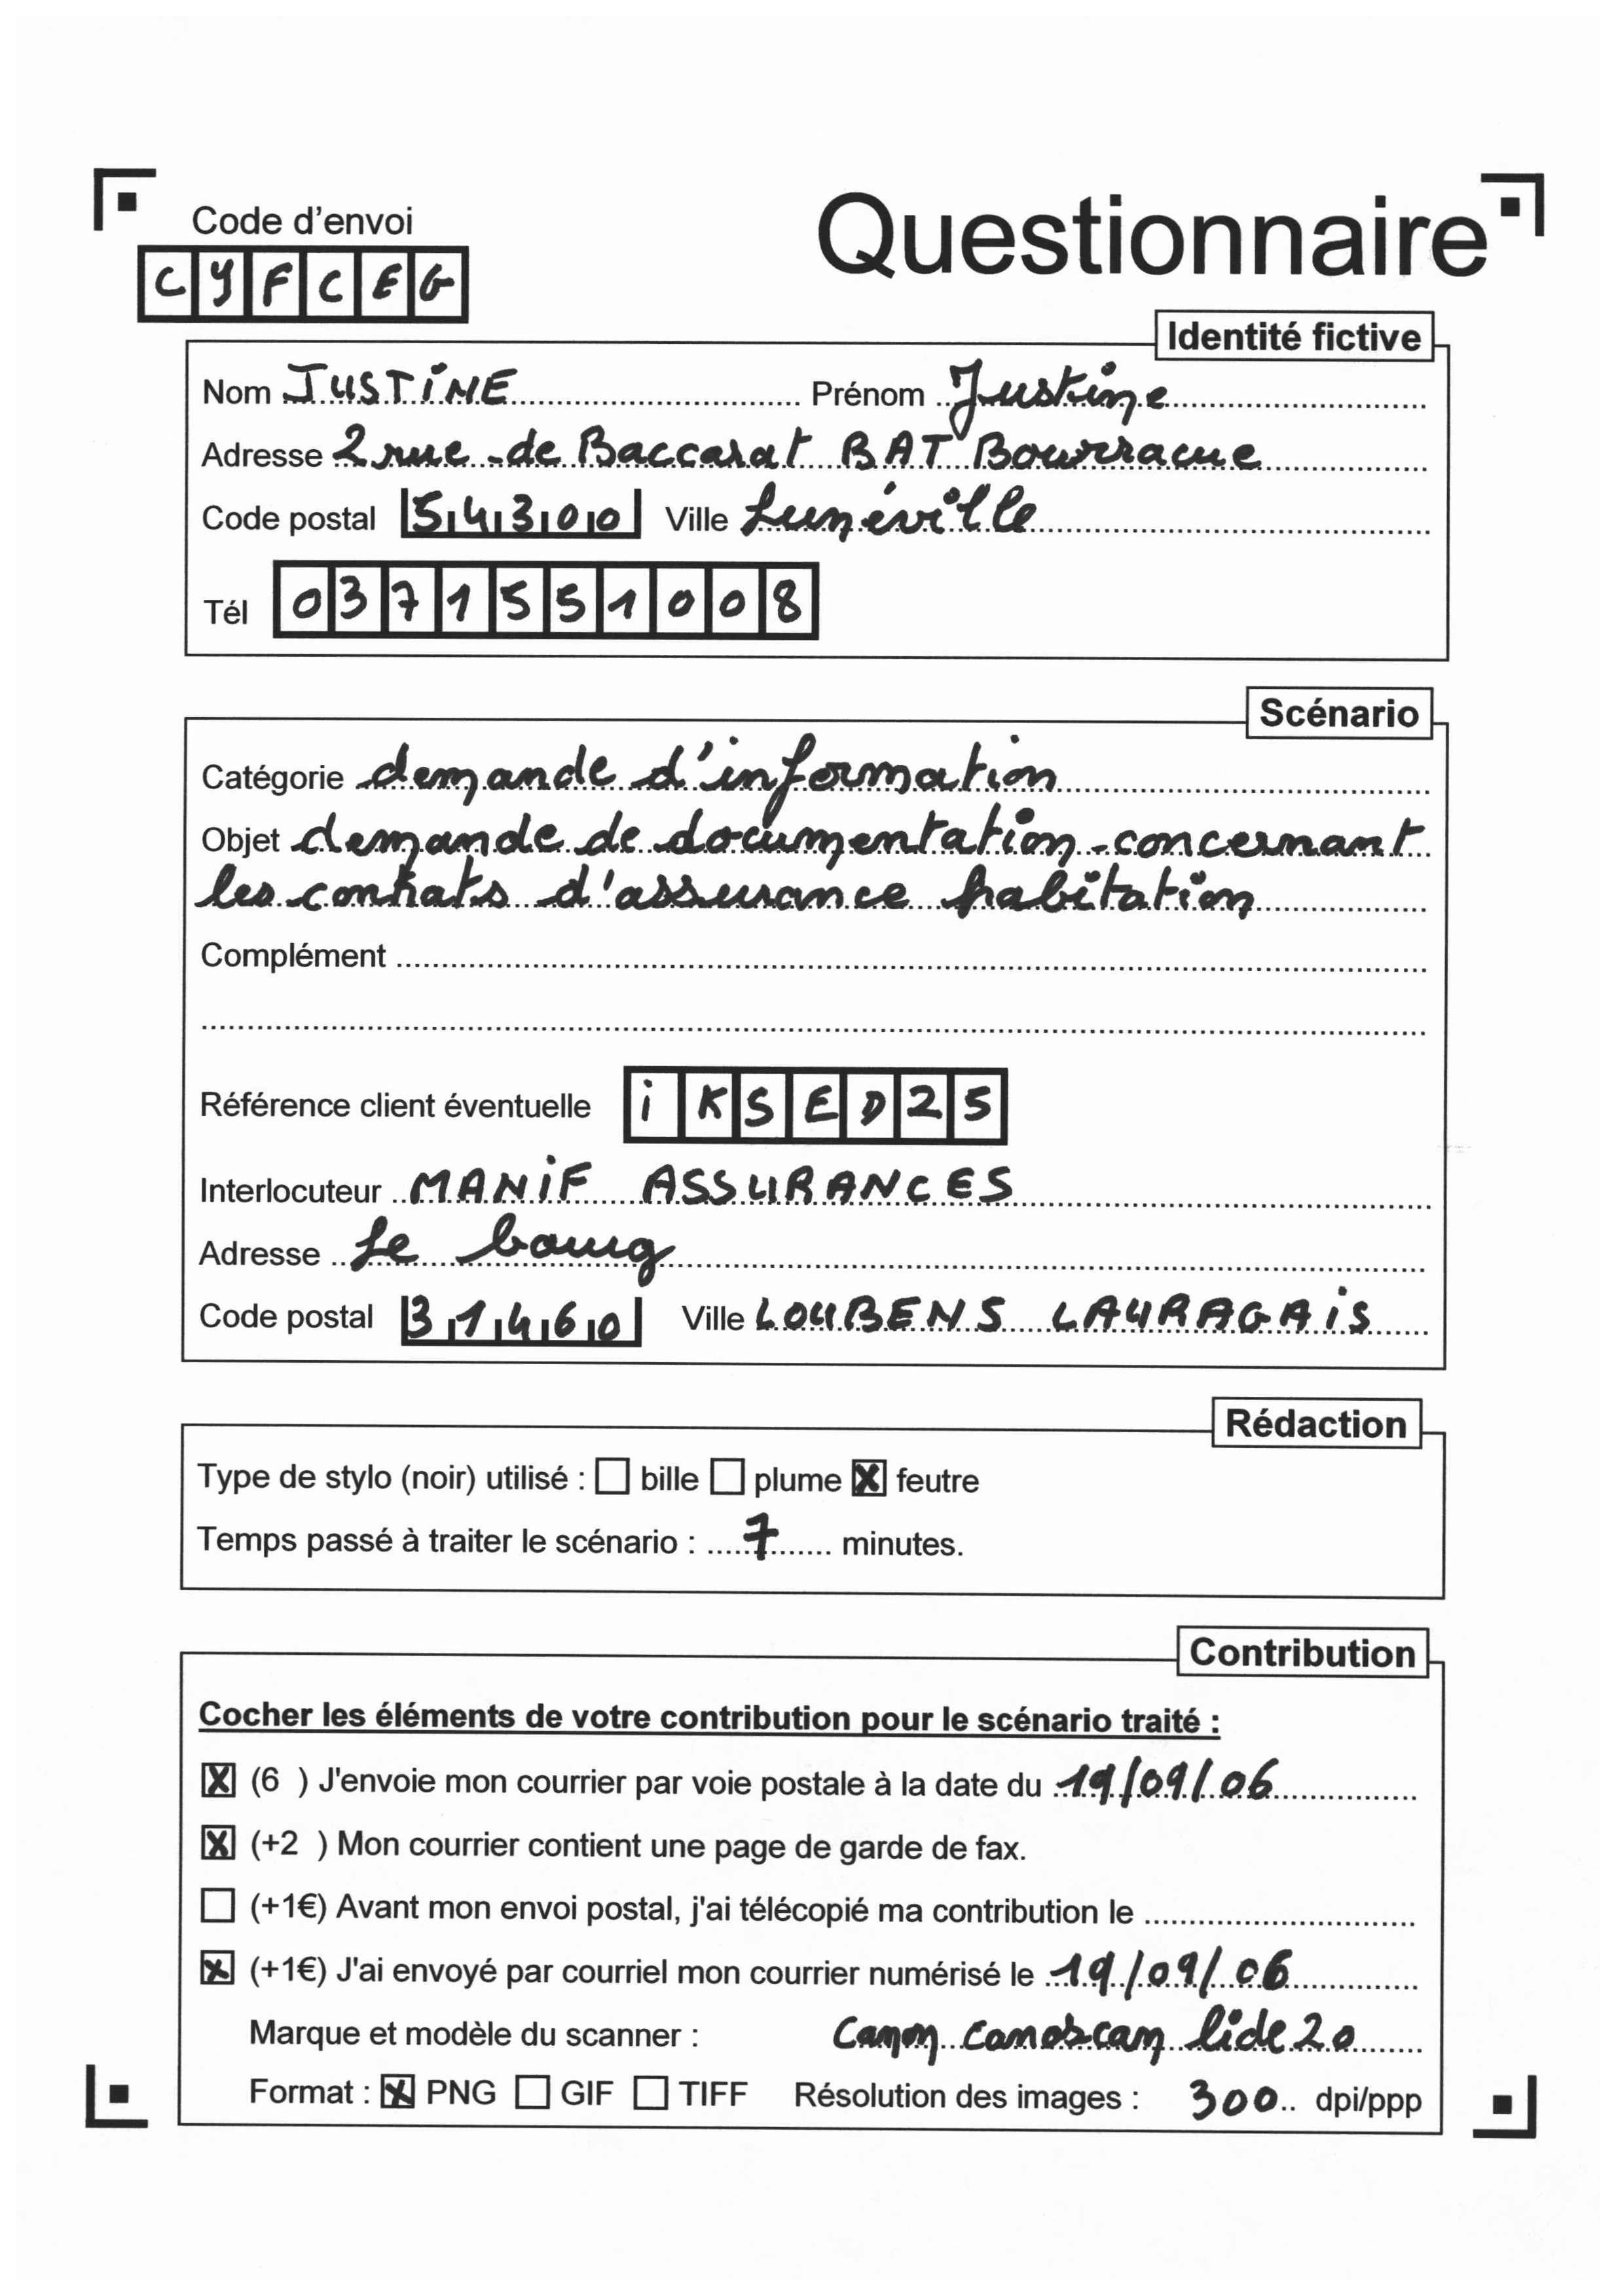 Code d'envoi
Questionnaire
CYFCEG
Identité fictive
Nom JUSTiNE Prénom Justine
Adresse 2 rue de Baccarat BAT Bourracue
Code postal 54300 Ville Lunéville
Tél 0371551008
Scénario
Catégorie demande d'information
Objet demande de documentation concernant
les contrats d'assurance habitation
Complément
Référence client éventuelle iKSED25
Interlocuteur MANiF ASSURANCES
Adresse Le bourg
Code postal 31460 Ville LOUBENS LAURAGAiS
Rédaction
Type de stylo (noir) utilisé : bille plume X feutre
Temps passé à traiter le scénario : 7 minutes.
Contribution
Cocher les éléments de votre contribution pour le scénario traité :
X (6 ) J'envoie mon courrier par voie postale à la date du 19/09/06
X (+2 ) Mon courrier contient une page de garde de fax.
(+1€) Avant mon envoi postal, j'ai télécopié ma contribution le
X (+1€) J'ai envoyé par courriel mon courrier numérisé le 19/09/06
Marque et modèle du scanner : Canon canoscan lide 20
Format : X PNG GIF TIFF Résolution des images : 300 dpi/ppp